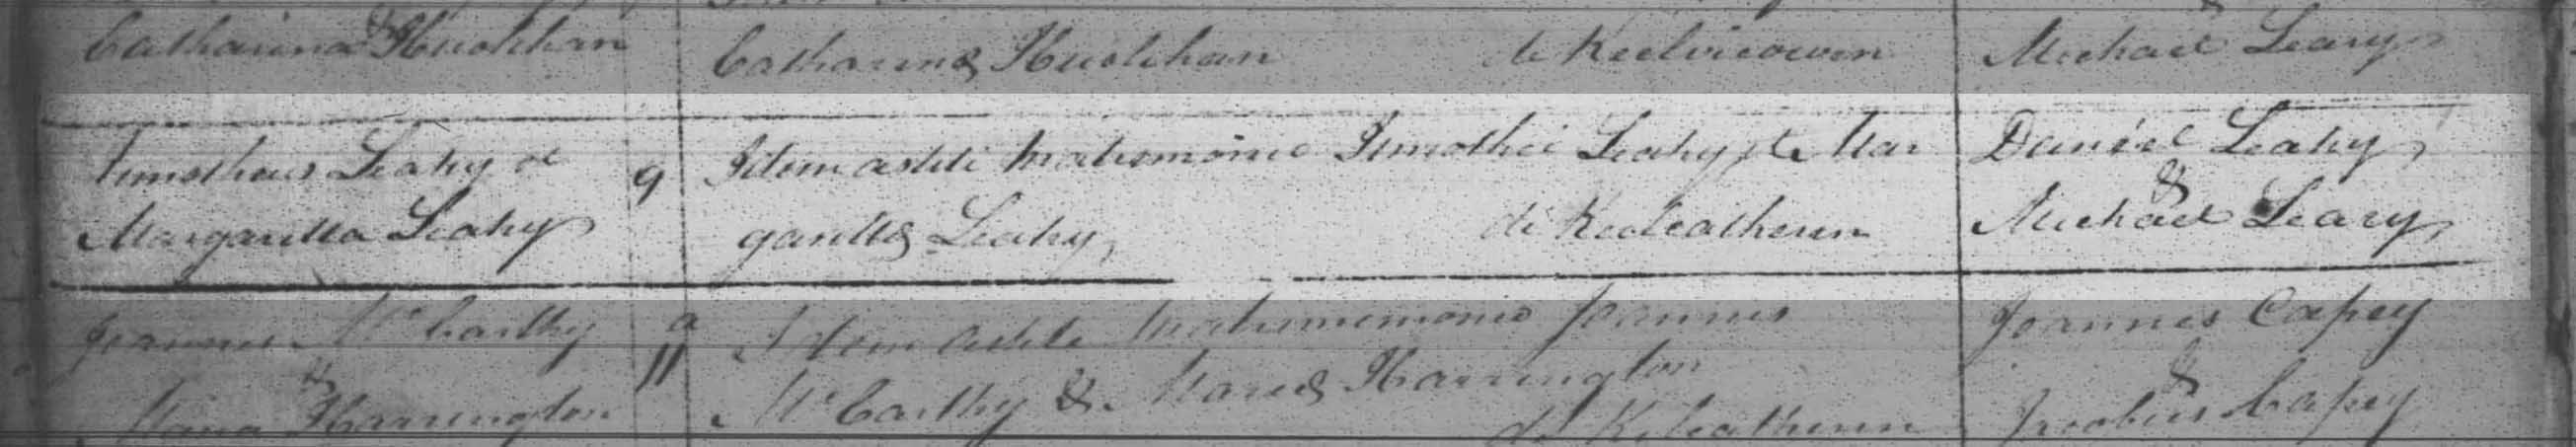 Catharina & Huolihan
Catharinæ Huolihan de Keelvicowen
Michael Leary
Timotheus Leahy et
Margaritta Leahy
9
Idem astiti Matrimonio Timothei Leahy et Mar
garittæ Leahy
de Keeleatherin
Daniel Leahy
&
Michael Leary
Joannes McCarthy
&
Maria Harrington
11
Idem astiti Matrimemonio Joannis
McCarthy & Mariæ Harrington
de Kileatherin
Joannes Casey
&
Jacobus Casey